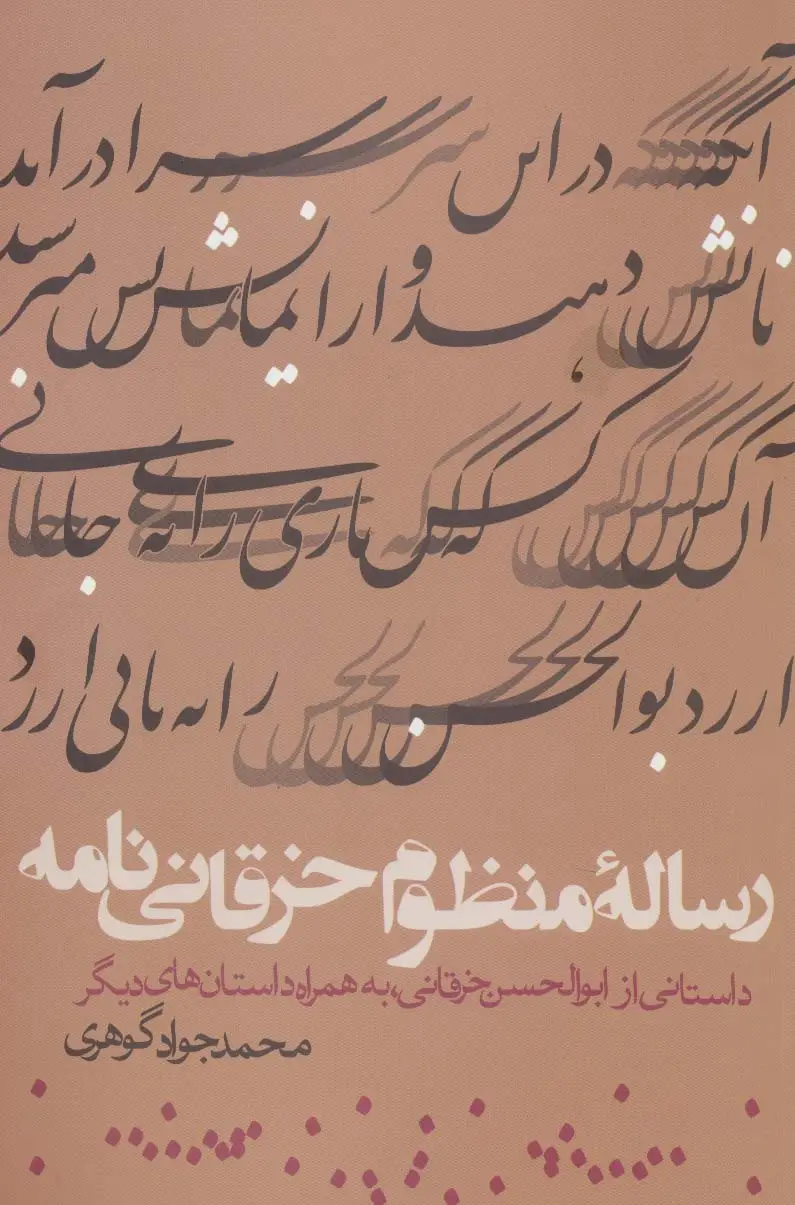 آنکه در این سرا درآید
نانش دهید و از ایمانش مپرسید
آن کس که باری را به جانی
ارزد بوالحسن را به نانی ارزد
رسالهٔ منظوم خرقانی‌نامه
داستانی از ابوالحسن خرقانی، به همراه داستان‌های دیگر
محمدجواد گوهری